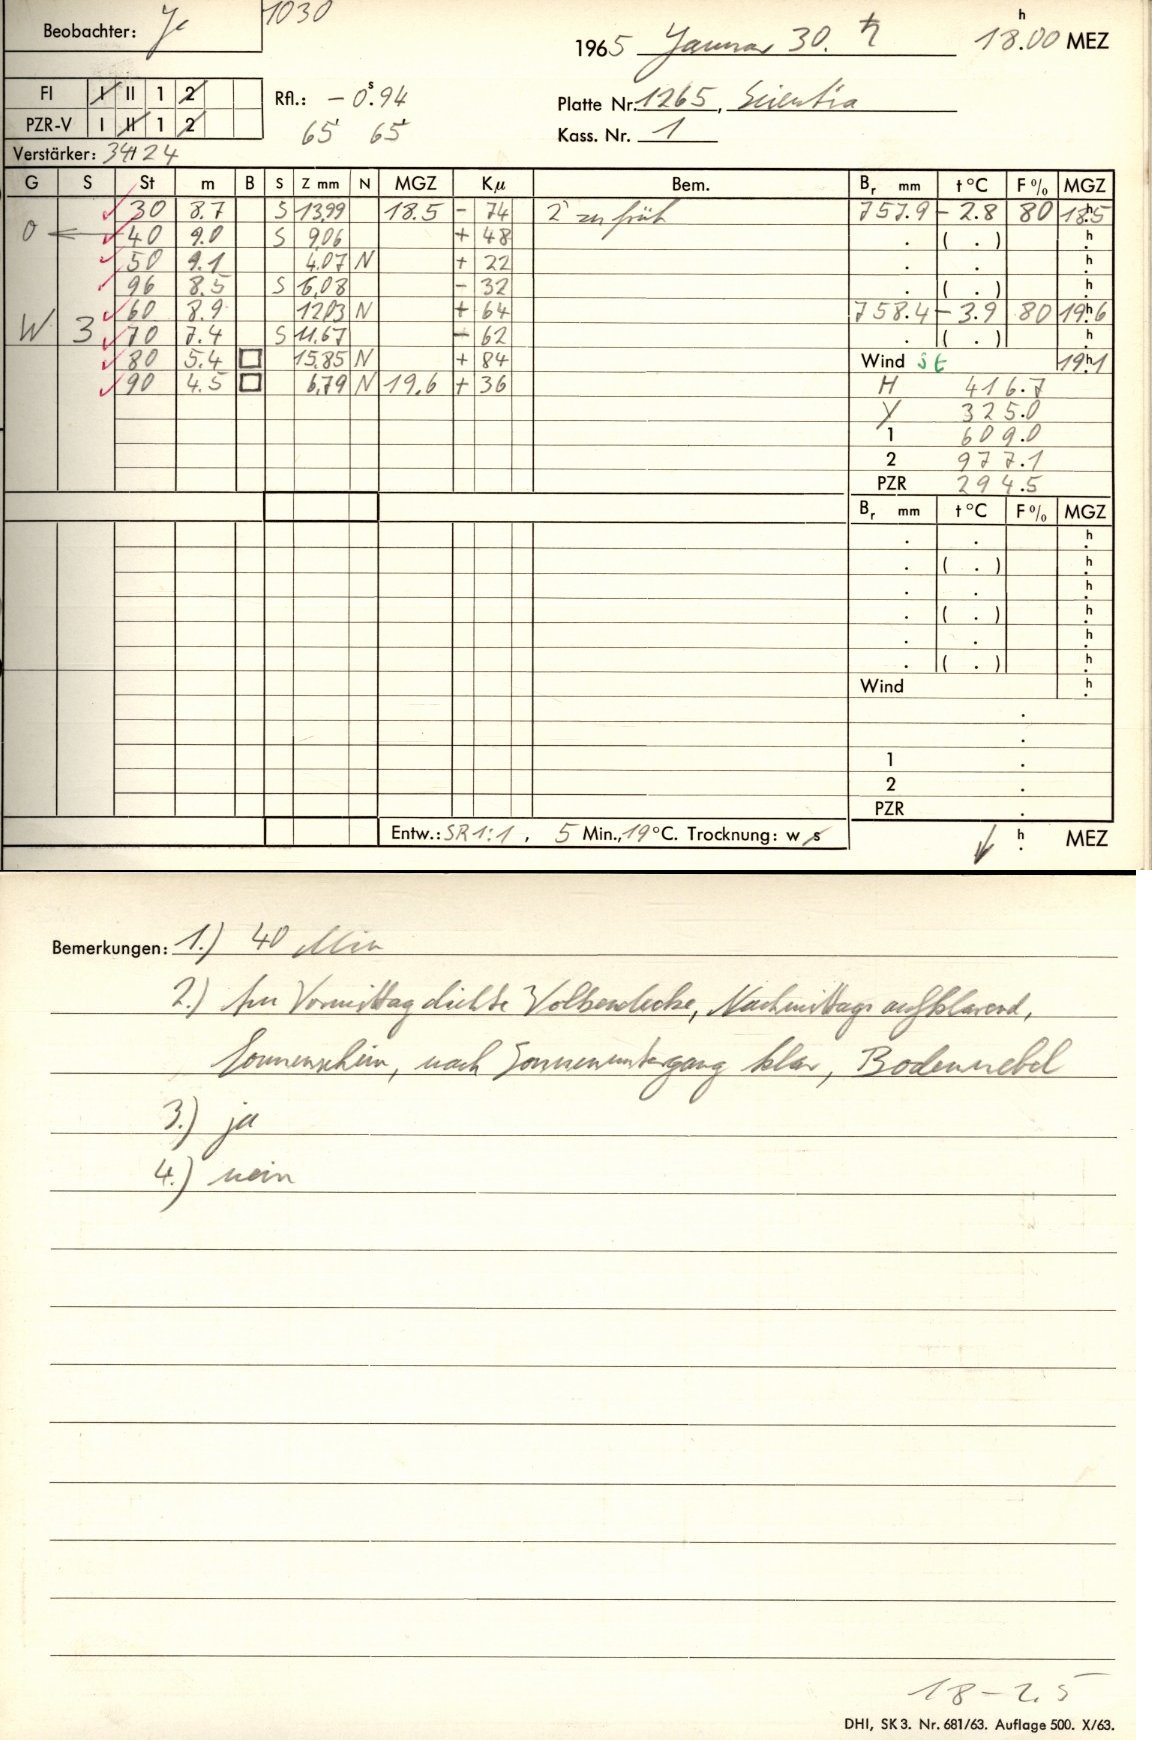 Beobachter: Je 1030
1965 Januar 30. ♄ 18h.00 MEZ
FI I II 1 2
Rfl.: - 0s.94
Platte Nr. 1265, Scientia
PZR-V I II 1 2
65 65
Kass. Nr. 1
Verstärker: 34124
G S St m B S Z mm N MGZ Kμ Bem. Br mm t °C F % MGZ
30 8.7 S 13.99 18.5 - 74 2s zu früh 757.9 - 2.8 80 18h.5
O 40 9.0 S 9.06 + 48 . ( . ) h.
50 9.1 4.07 N + 22 . . h.
96 8.5 S 6.08 - 32 . ( . ) h.
60 8.9 12.03 N + 64 758.4 - 3.9 80 19h.6
W 3 70 7.4 S 11.67 - 62 . ( . ) h.
80 5.4 □ 15.85 N + 84 Wind st 19h.1
90 4.5 □ 6.79 N 19.6 + 36 H 416.7
Y 325.0
1 609.0
2 977.1
PZR 294.5
Br mm t °C F % MGZ
. . h.
. ( . ) h.
. . h.
. ( . ) h.
. . h.
. ( . ) h.
Wind h.
.
.
1 .
2 .
PZR .
Entw.: SR 1:1 , 5 Min., 19 °C. Trocknung: w s
h. MEZ
Bemerkungen: 1.) 40 Min
2.) Am Vormittag dichte Wolkendecke, Nachmittags aufklarend,
Sonnenschein, nach Sonnenuntergang klar, Bodennebel
3.) ja
4.) nein
18 - 2.5
DHI, SK 3. Nr. 681/63. Auflage 500. X/63.